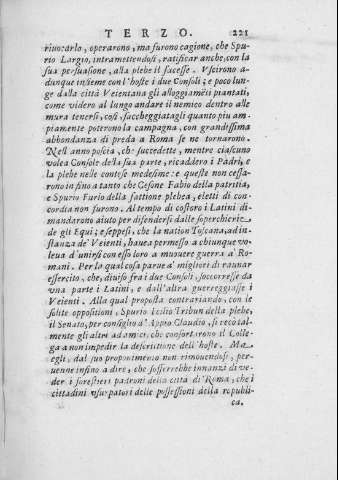 TERZO. 221
riuocarlo, operarono, ma furono cagione, che Spu-
rio Largio, intramettendosi, ratificar anche, con la
sua persuasione, alla plebe il facesse. Vscirono a-
dunque insieme con l'hoste i due Consoli; e poco lun-
ge dalla città Veientana gli alloggiaméti piantati,
come videro al lungo andare il nemico dentro alle
mura tenersi, così, saccheggiatagli quanto piu am-
piamente poterono la campagna, con grandissima
abbondanza di preda a Roma se ne tornarono.
Nell'anno poscia, che succedette, mentre ciascuno
volea Console della sua parte, ricaddero i Padri, e
la plebe nelle contese medesime: e queste non cessa-
rono in fino a tanto che Cesone Fabio della patritia,
e Spurio Furio della fattione plebea, eletti di con-
cordia non furono. Al tempo di costoro i Latini di-
mandarono aiuto per difendersi dalle soperchierie
de gli Equi; e seppesi, che la nation Toscana, ad in-
stanza de' Veienti, hauea permesso a chiunque vo-
leua d'vnirsi con esso loro a muouere guerra a' Ro-
mani. Per la qual cosa parue a' migliori di raunar
essercito, che, diuiso fra i due Consoli, soccorresse da
vna parte i Latini, e dall'altra guerreggiasse i
Veienti. Alla qual proposta contrariando, con le
solite oppositioni, Spurio Icilio Tribun della plebe,
il Senato, per consiglio d'Appio Claudio, si recò tal-
mente gli altri adamici, che confortarono il Colle-
ga a non impedir la descrittione dell'hoste. Ma
egli, dal suo proponimento non rimouendosi, per-
uenne infino a dire, che sofferrebbe innanzi di ve-
der i forestieri patroni della città di Roma, che i
cittadini vsurpatori delle possessioni della republi-
ca.